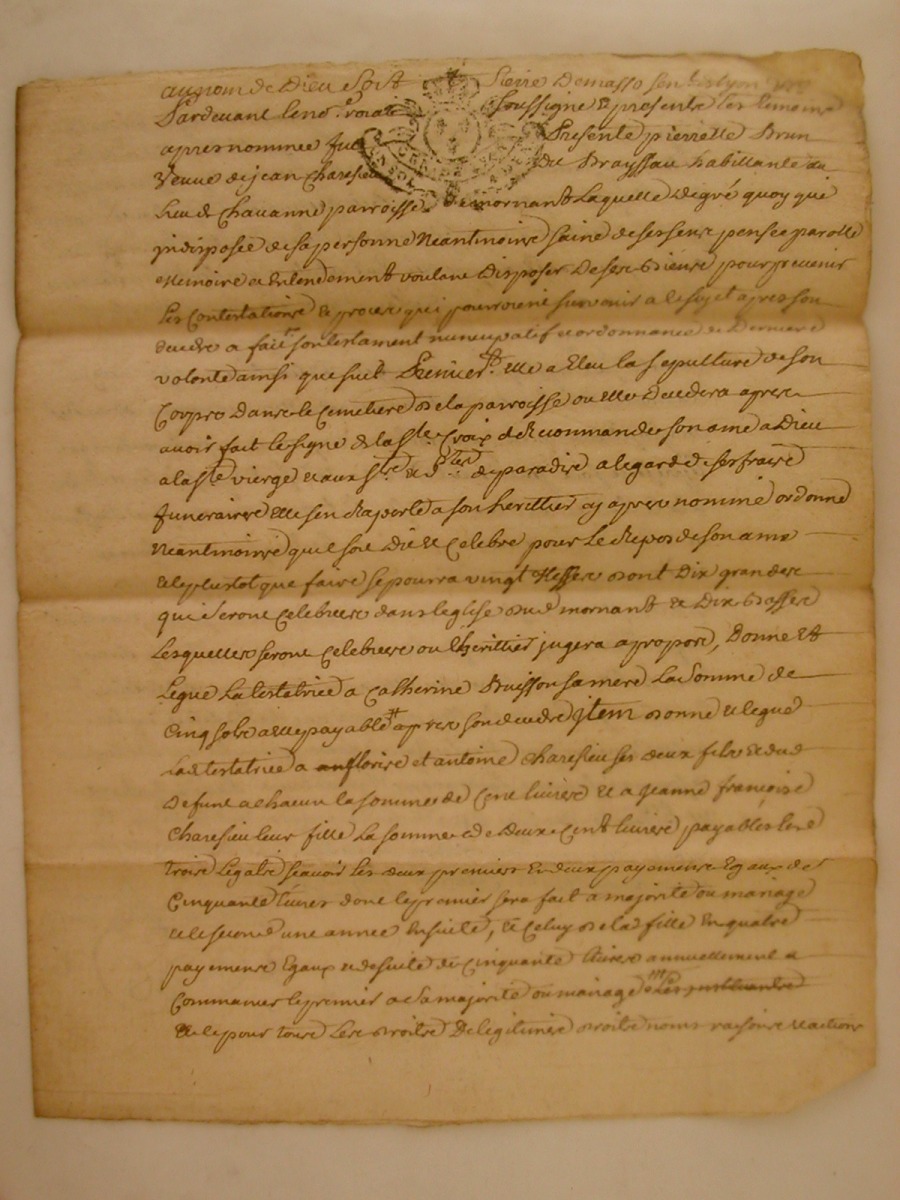 au nom de Dieu Soit
Pardevant le no.re royal soussigné et presents les temoins
apres nommes fut Presente pierrette Brun
veuve de jean Charesieu du Brayssau habittante du
lieu de Chavanne parroisse de mornant Laquelle de gré quoy que
jndisposée de sa personne neantmoins saine de ses sens pensée parolle
memoire et Entendement voulant disposer de ses Biens pour prevenir
les Contestations et proces qui pourroient survenir a le sujet apres son
deceds a fait son testament nuncupatif et ordonnance de Derniere
volonté ainsi que suit Premier.t elle a Eleu la sepulture de son
Corps Dans le Cemetiere de la parroisse ou elle decedera apres
avoir fait le signe de la ste Croix et Recommandé son ame a Dieu
a la ste vierge et aux sts et stes de paradis a legard de ses frais
funeraires elle sen Raporte a son herittier cy apres nommé ordonne
neantmoins quil soit Dit et Celebré pour le Repos de son ame
et le plustot que faire se pourra vingt Messes dont Dix grandes
qui seront Celebrees dans leglise dud mornant et Dix Basses
lesquelles seront Celebrees ou lherittier jugera a propos, Donne et
legue la testatrice a Catherine Buisson sa mere la somme de
Cinq sols a elle payable apres son deceds jtem donne et legue
lad testatrice a floris et antoine Charesieu ses deux fils et dud
defunt a chacun la somme de Cent livres et a jeanne françoise
Charesieu leur fille la somme de Deux Cent livres payables les
trois legats scavoir les deux premiers En deux payements Egaux de
Cinquante livres dont le premier sera fait a majorité ou mariage
et le second une année Ensuite, et Celuy de la fille En quatre
payements Egaux et de suite de Cinquante livres annuellement a
Commancer le premier a sa majorité ou mariage
et ce pour tous les droits De legitimes droits noms raisons et actions